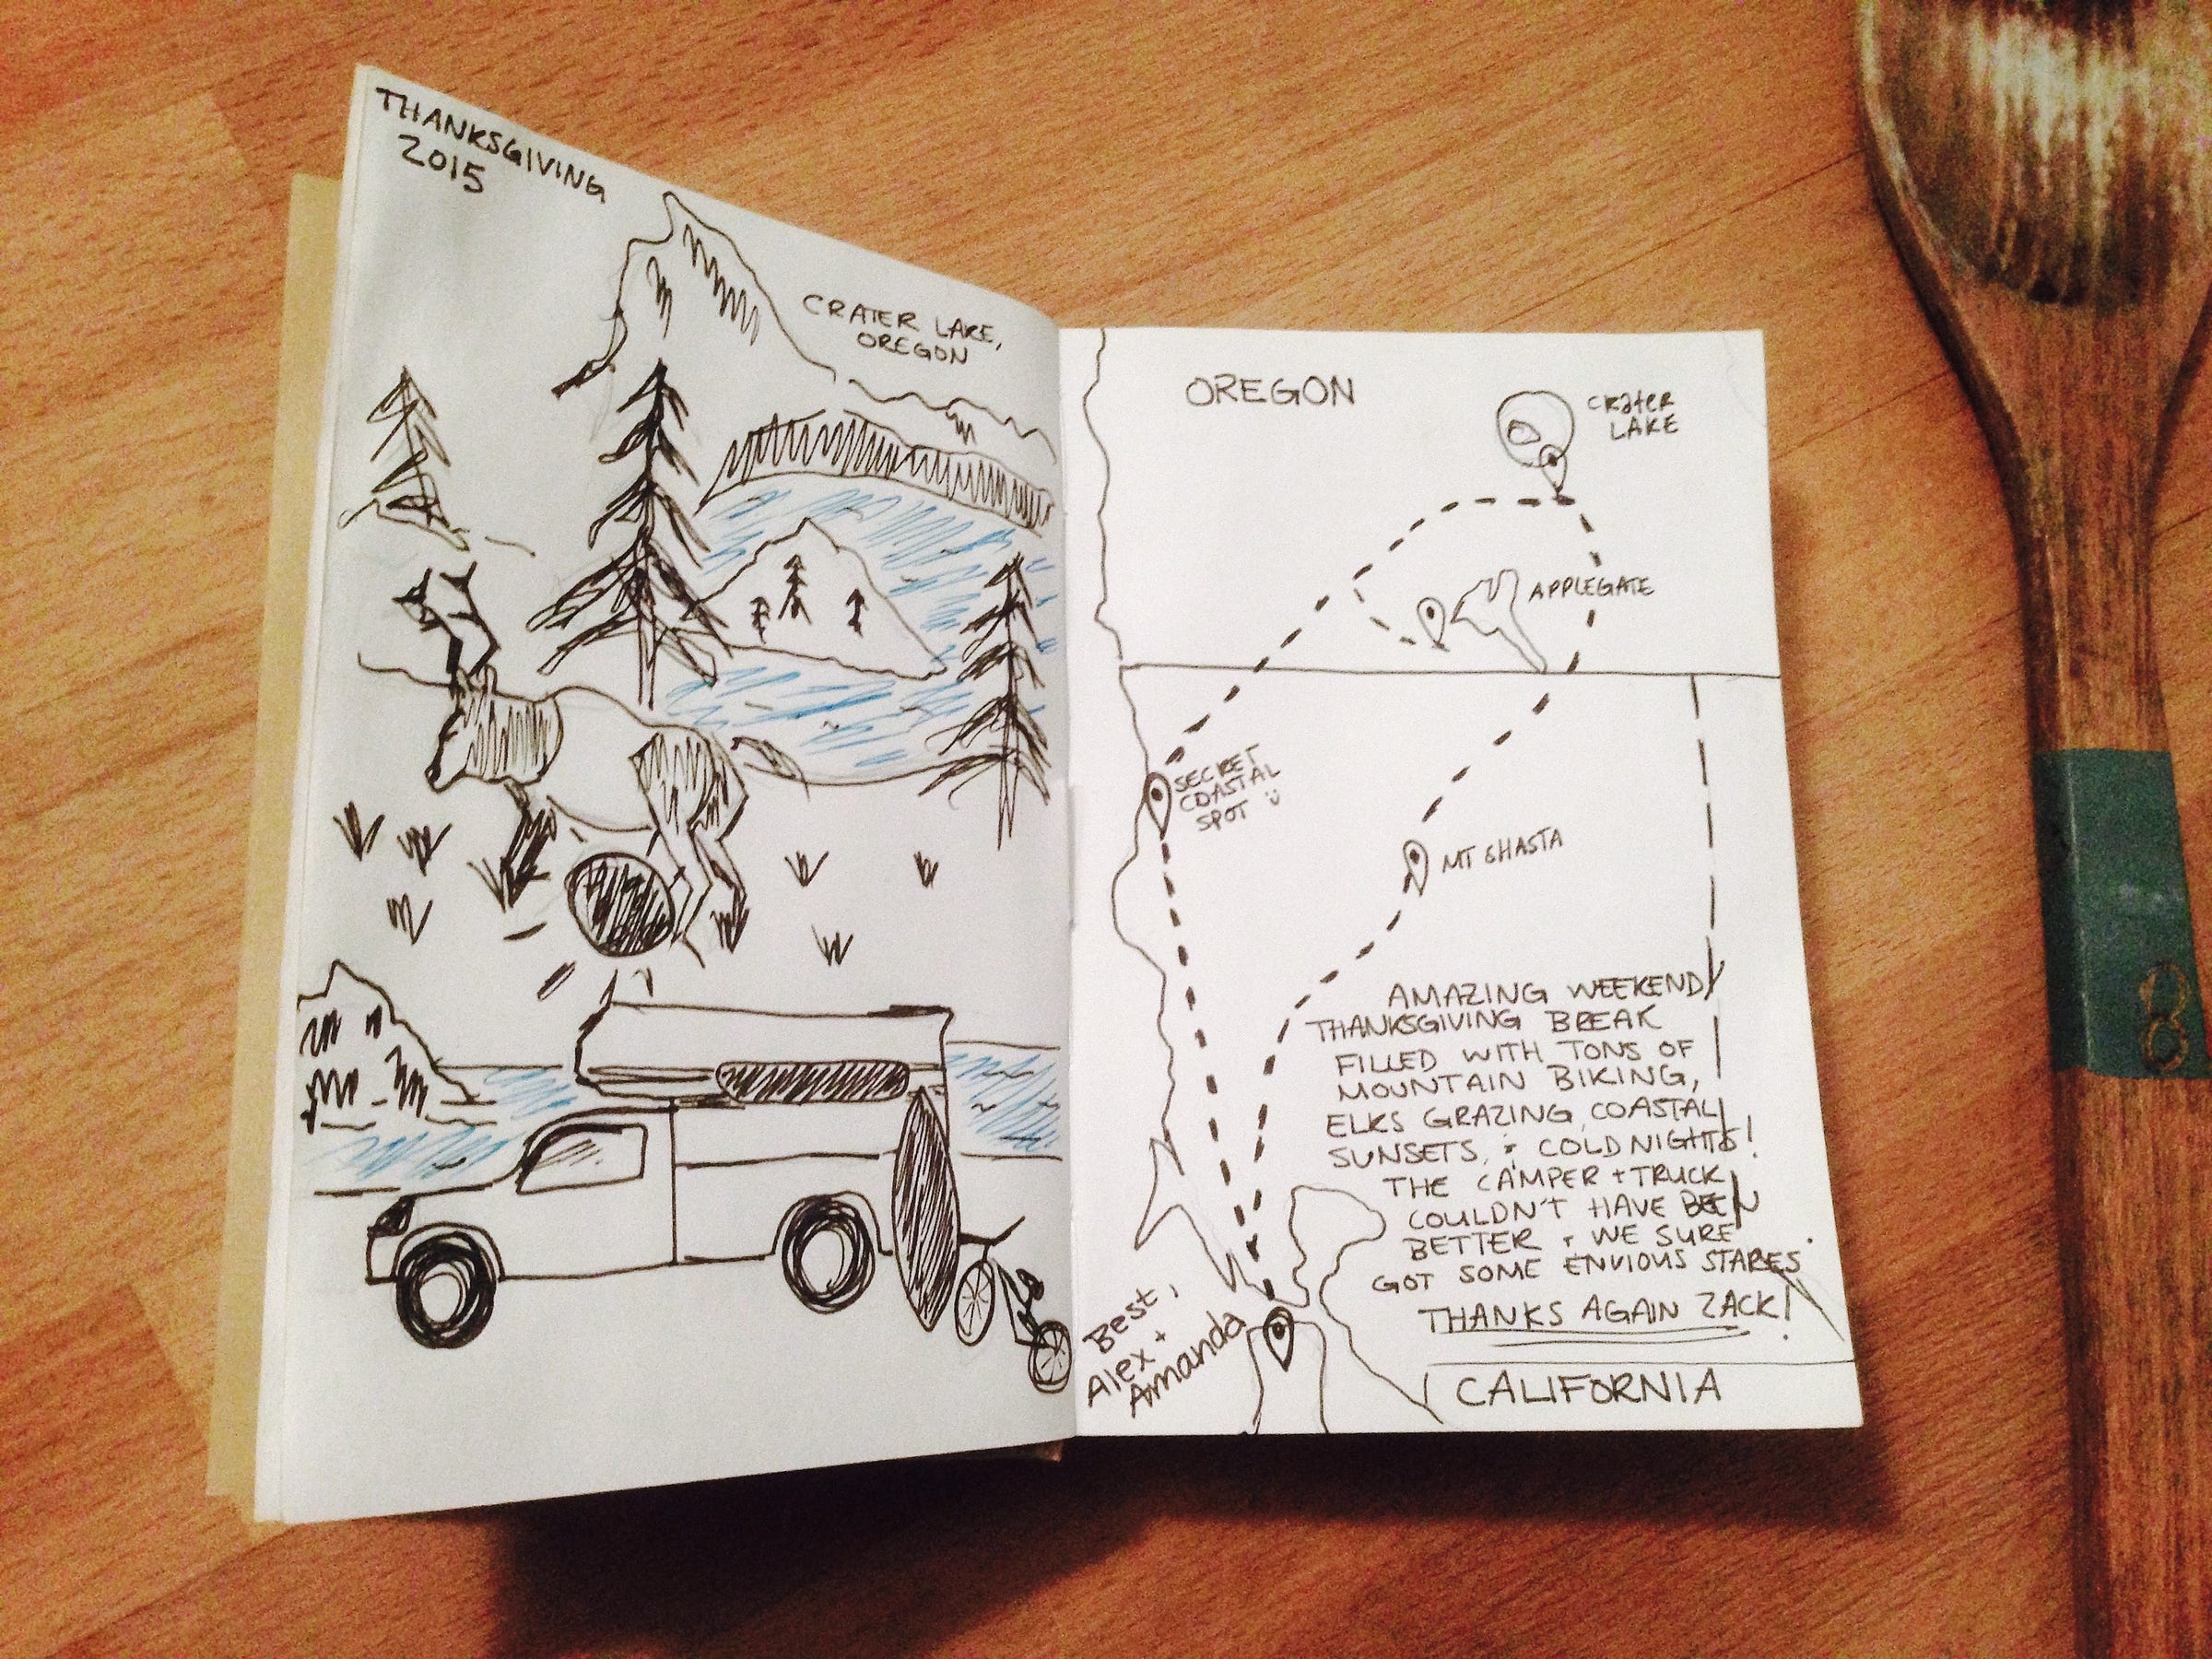 THANKSGIVING
2015
CRATER LAKE,
OREGON
OREGON
CRATER
LAKE
APPLEGATE
SECRET
COASTAL
SPOT
MT SHASTA
AMAZING WEEKEND
THANKSGIVING BREAK
FILLED WITH TONS OF
MOUNTAIN BIKING,
ELKS GRAZING, COASTAL
SUNSETS, + COLD NIGHTS!
THE CAMPER + TRUCK
COULDN'T HAVE BEEN
BETTER + WE SURE
GOT SOME ENVIOUS STARES.
THANKS AGAIN ZACK!
Best,
Alex +
Amanda
CALIFORNIA
8